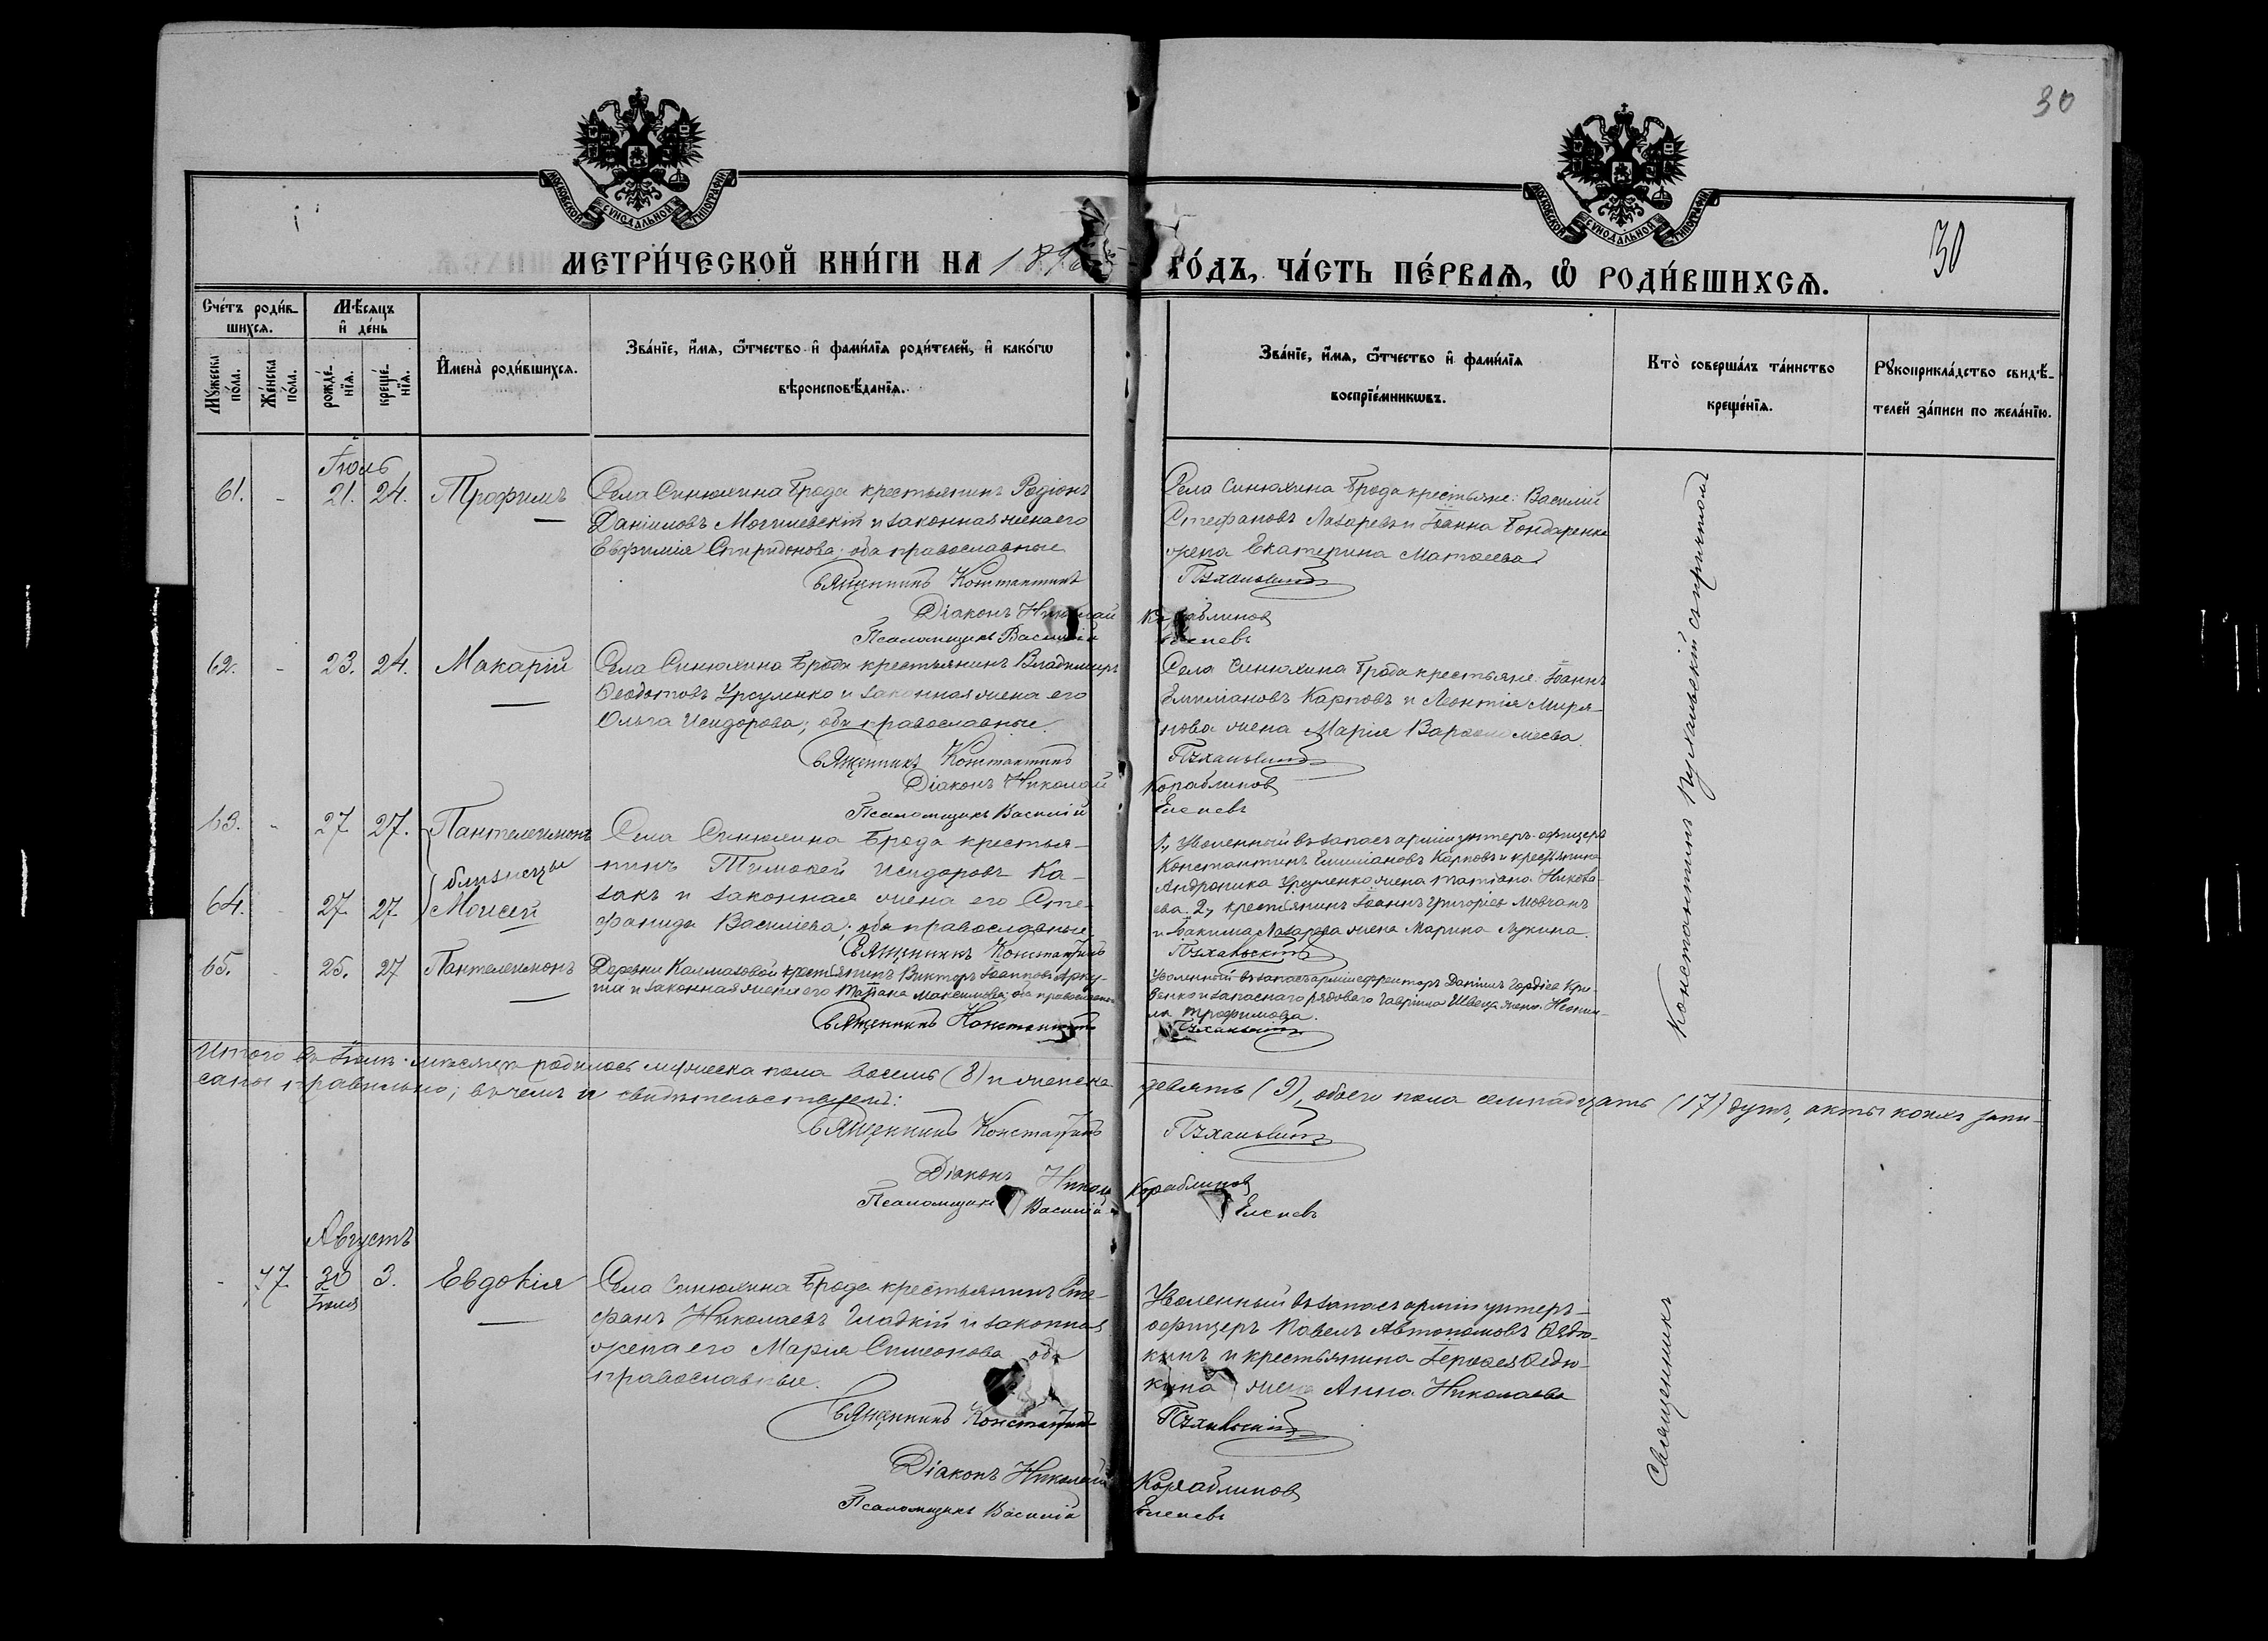 30
МОСКОВСКОЙ СѴНОДАЛЬНОЙ ТИПОГРАФІИ
МОСКОВСКОЙ СѴНОДАЛЬНОЙ ТИПОГРАФІИ
30
МЕТРИ́ЧЕСКОЙ КНИ́ГИ НА 189
ГО́ДЪ, ЧА́СТЬ ПЕ́РВАѦ, Ѡ РОДИ́ВШИХСѦ.
Сче́тъ роди́в-
шихсѧ.
Мѣ́сѧцъ
и҆ де́нь
Мꙋ́жеска по́ла.
Же́нска по́ла.
рожде́-
нїѧ.
креще́-
нїѧ.
И҆мена̀ роди́вшихсѧ.
Зва́нїе, и҆́мѧ, ѻ҆́тчество и҆ фами́лїѧ роди́телей, и҆ како́гѡ
вѣроисповѣ́данїѧ.
Зва́нїе, и҆́мѧ, ѻ҆́тчество и҆ фами́лїѧ
воспрїе́мникѡвъ.
Кто̀ соверша́лъ та́инство
креще́нїѧ.
Рꙋкоприкла́дство свидѣ́-
телей за́писи по жела́нїю.
Іюль
61. - 21. 24. Трофимъ
Села Синюхина Брода крестьянинъ Родіонъ
Даніиловъ Могилевскій и законная жена его
Евфимія Спиридонова; оба православные
Священникъ Константинъ
Діаконъ Николай
Псаломщикъ Василій
Села Синюхина Брода крестьяне: Василій
Стефановъ Лазаревъ и Іоанна Бондаренка
жена Екатерина Матѳеева
Пухальскій
Кораблиновъ
Еленевъ
62. - 23. 24. Макарій
Села Синюхина Брода крестьянинъ Владимиръ
Ѳеодотовъ Урсуленко и законная жена его
Ольга Исидорова; оба православные.
Священникъ Константинъ
Діаконъ Николай
Псаломщикъ Василій
Села Синюхина Брода крестьяне: Іоаннъ
Емиліановъ Карповъ и Леонтія Миря-
нова жена Марія Варѳоломеева.
Пухальскій
Кораблиновъ
Еленевъ
63. - 27. 27. Пантелеимонъ
близнецы
64. - 27. 27. Моисей
Села Синюхина Брода крестья-
нинъ Тимоѳей Исидоровъ Ка-
закъ и законная жена его Сте-
фанида Василіева; оба православные.
Священникъ Константинъ
1, Уволенный въ запасъ арміи унтеръ-офицеръ
Константинъ Емиліановъ Карповъ и крестьянина
Андроника Урсуленко жена Татіана Никола-
ева. 2, крестьянинъ Іоаннъ Григоріевъ Мовчанъ
и Іоакима Лазарева жена Марина Лукина.
Пухальскій
65. - 25. 27 Пантелеимонъ
Деревни Калмазовой крестьянинъ Викторъ Іоанновъ
и законная жена его Татіана Максимова; оба православные
Священникъ Константинъ
Уволенный въ запасъ арміи ефрейторъ Даніилъ Гордіевъ Кри-
венко и запаснаго рядового Гавріила Швеца жена Неони-
ла Трофимова.
Пухальскій
Итого въ Іюлѣ мѣсяцѣ родилось мужеска пола восемь (8) и женска
девять (9), обоего пола семнадцать (17) душъ, акты коихъ запи-
саны правильно; въ чемъ и свидѣтельствуемъ:
Священникъ Константинъ
Пухальскій
Діаконъ Николай
Кораблиновъ
Псаломщикъ Василій
Еленевъ
Августъ
- 47. 30 3. Евдокія
Іюля
Села Синюхина Брода крестьянинъ Сте-
фанъ Николаевъ Гладкій и законная
жена его Марія Симеонова оба
православные.
Священникъ Константинъ
Діаконъ Николай
Псаломщикъ Василій
Уволенный въ запасъ арміи унтеръ-
офицеръ Павелъ Автономовъ Ѳедю-
кинъ и крестьянина Іероѳея Ѳедю-
кина жена Анна Николаева
Пухальскій
Кораблиновъ
Еленевъ
Священникъ Константинъ Пухальскій съ причтомъ